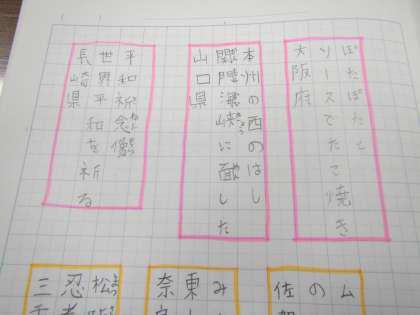 ぽたぽたと
ソースでたこ焼き
大阪府
本州の西のはし
関門海峡に面した
山口県
平和祈念像
世界平和を祈る
長崎県
ム
の
佐
み
東
奈
松
忍
三